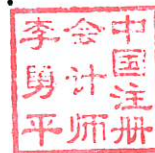 中国注册
会计师
李勇平